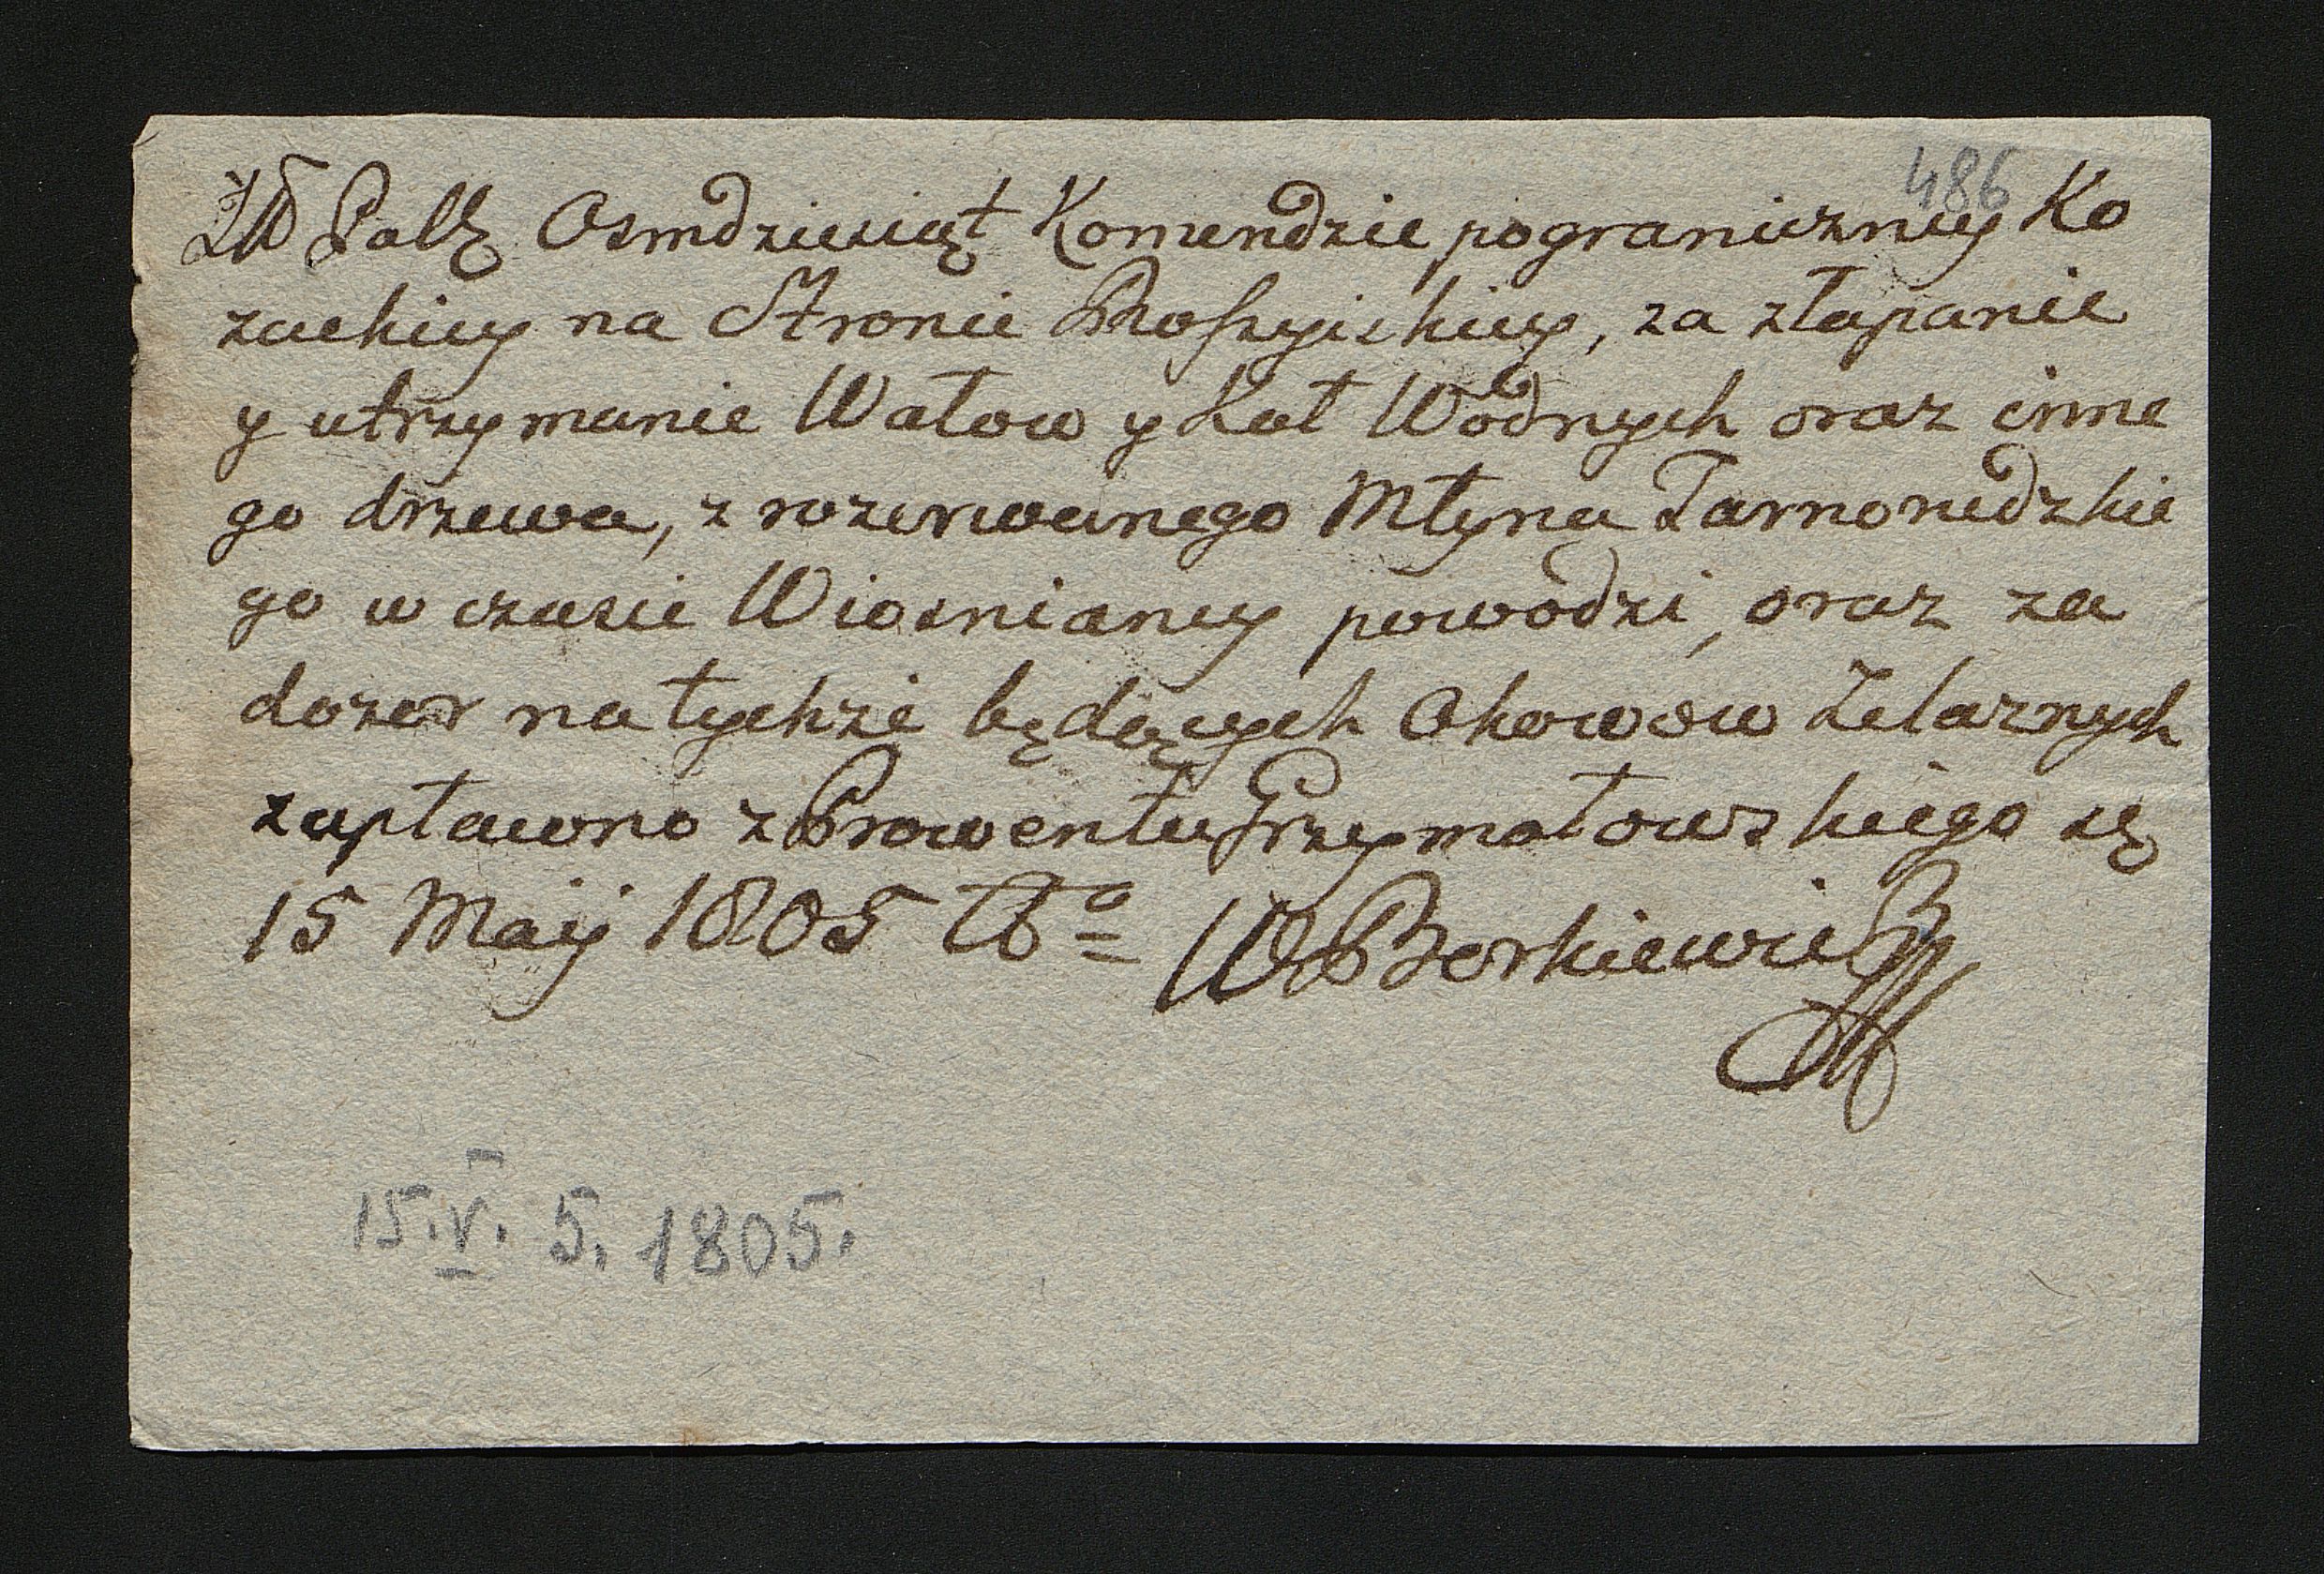 486
Osmdziesiąt Komendzie pograniczney Ko
zackiey na Stronie Rossyiskiey, za złapanie
y utrzymanie Wałow y Koł Wodnych oraz inne
go drzewa, z rozerwanego Młyna Tarnoredzkie
go w czasie Wiosnianey powodzi, oraz za
dozor na tychże będących Okowow Żelaznych
zapłacono z Prowentu Grzymałowskiego są
15 Maij 1805
W Borkiewicz
15.V. 5. 1805.